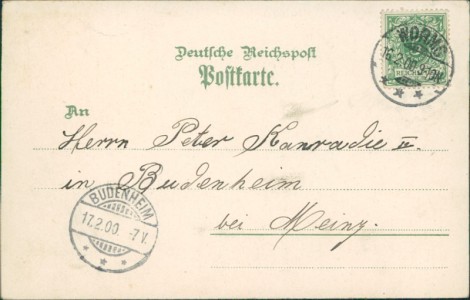 Deutsche Reichspost
Postkarte.
WORMS
16.2.00.
REICHSPOST
An
Herrn Peter Kanradie II.
in Budenheim
bei Meinz.
BUDENHEIM
17.2.00. -7V.